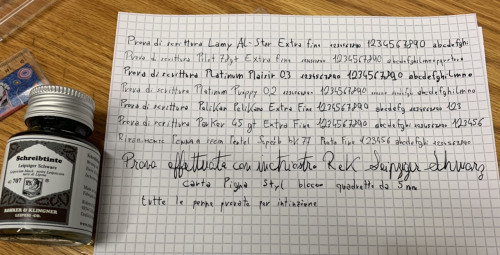 Prova di scrittura Lamy AL-Star Extra fine 1234567890 1234567890 abcdefghi
Prova di scrittura Pilot 78gt Extra fine 1234567890 1234567890 abcdefghi
Prova di scrittura Platinum Plaisir 03 1234567890 1234567890 abcdefghilmno
Prova di scrittura Platinum Preppy 0,2 1234567890 1234567890 abcdefghilmno
Prova di scrittura Pelikan Pelikano Extra Fine 1234567890 abcdefg 1234567890 123
Prova di scrittura Parker 45 gt Extra Fine 1234567890 abcdefg 1234567890 123456
Pentel Superb bk77 Punta fine 123456 abcdefghi 1234567890
Prova effettuata con inchiostro R&K Leipziger Schwarz
carta Pigna Styl blocco quadretto da 5 mm
tutte le penne provate per intinzione
Schreibtinte
Leipziger Schwarz
ROHRER & KLINGNER
LEIPZIG-CO.